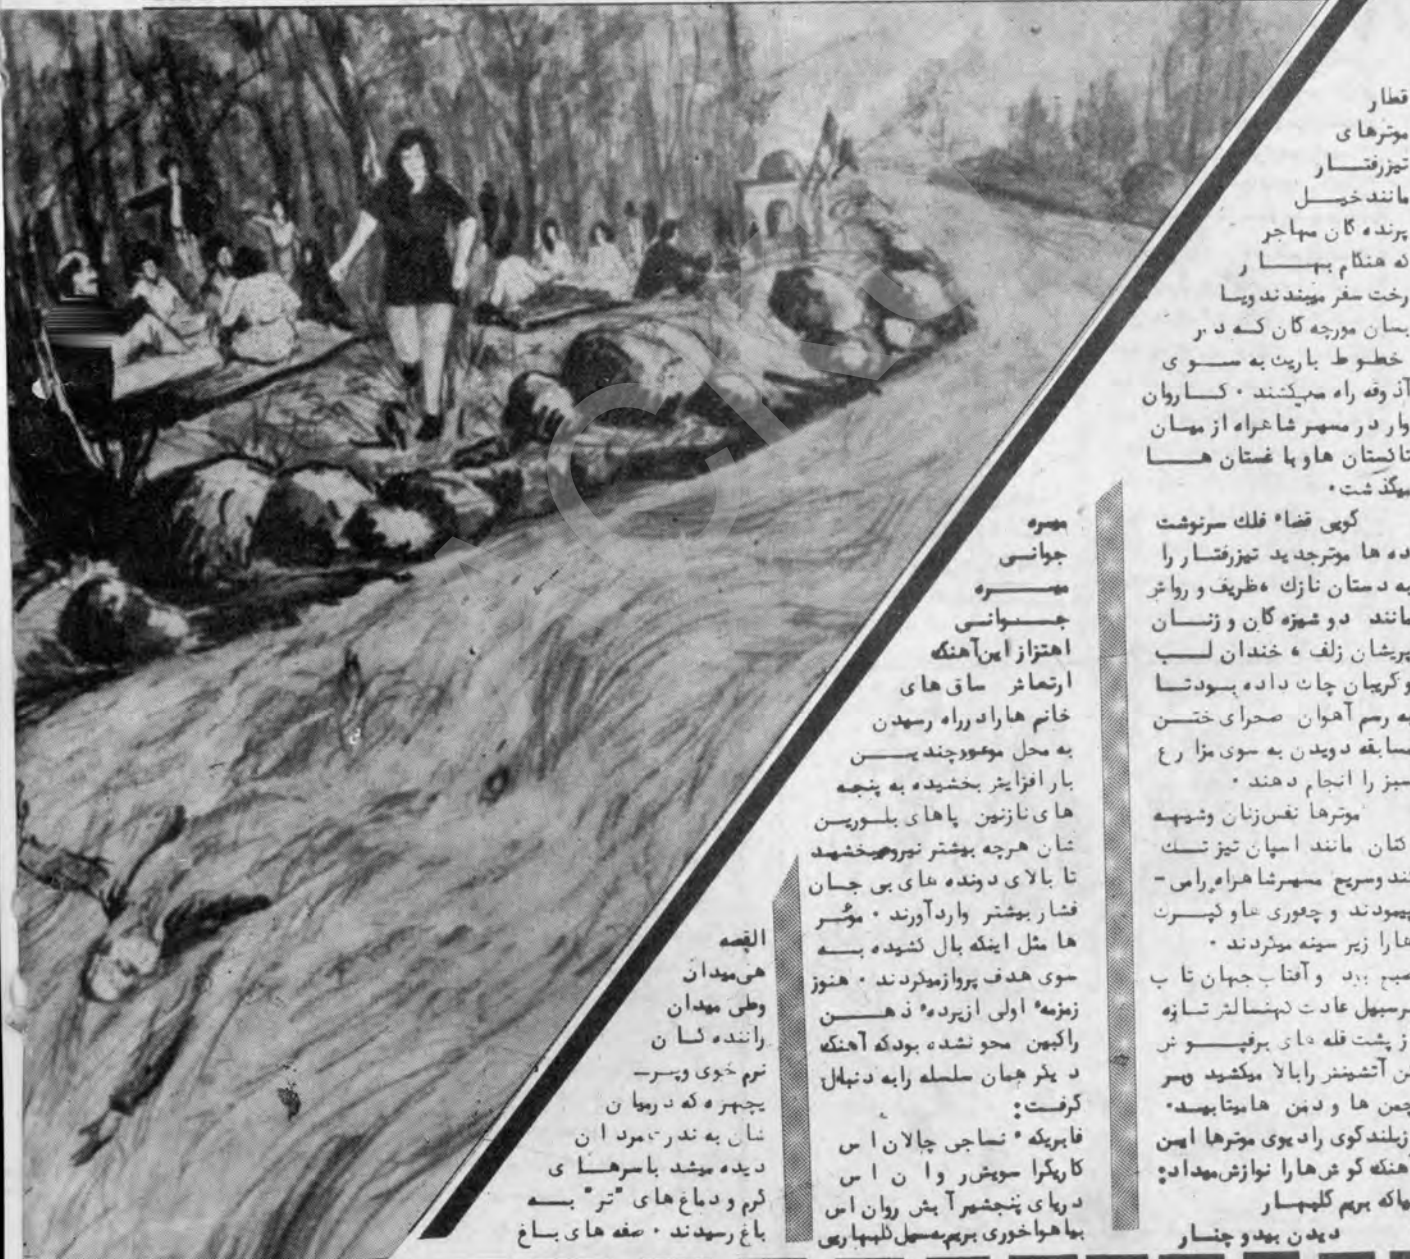 قطار
موترهای
تیزرفتــار
مانند خیــل
پرنده گان مهاجر
که هنگام بهــار
رخت سفر میبندند ویــا
بسان مورچه گان کــه در
خطوط باریک به ســوی
آذوقه راه میکشند ۰ کــاروان
وار در مسیر شاهراه از میــان
تاکستان ها و باغستان هــا
میگذشت ۰
گویی قضاء فلک سرنوشت
ده ها موترجدید تیزرفتــار را
به دستان نازک ، ظریف و رواش
مانند دوشیزه گان و زنــان
پریشان زلف ، خندان لــب
وگریبان چاک داده بــودتــا
به رسم آهوان صحرای ختــن
مسابقه دویدن به سوی مزارع
سبز را انجام دهند ۰
موترها نفس زنان وشیهــه
کنان مانند اسپان تیز تــک
تند وسریع مسیرشاهراه رامی -
پیمودند و چقوری ها و
هارا زیر سینه میکردند ۰
صبح بود و آفتاب جهان تاب
برسبیل عادت کهنسالش تــازه
از پشت قله های برفپــوش
تن آتشینش رابالا میکشید وبــر
چمن ها و دمن هامیتابیــد ۰
ازبلندگوی رادیوی موترها ایــن
آهنگ گوش هارا نوازش میداد :
بیاکه بریم گلبهــار
دیدن بیدو چنــار
میــره
جوانــی
میــره
جــوانــی
اهتزاز این آهنگ
ارتعاش ساق های
خانم هارادرراه رسیدن
به محل موعودچندیــن
بار افزایش بخشیده به پنجه
های نازنین پاهای بلــورین
شان هرچه بیشتر نیرومیبخشید
تا بالای دونده های بی جــان
فشار بیشتر واردآورند ۰ موتــر
ها مثل اینکه بال کشیده بــه
سوی هدف پروازمیکردند ۰ هنوز
زمزمهٔ اولی ازپردهٔ ذهــن
راکبین محو نشده بودکه آهنگ
دیگر همان سلسله رابه دنبال
گرفــت :
فابریکه ٔ نساجی چالان اس
کاریگرا سویش روان اس
دریای پنجشیر آبش روان اس
بیاهواخوری بریم به سیل گلبهاریی
القصه
هی میدان
وطی میدان
راننده گــان
نرم خوی وپــر-
یچهره که درمیان
شان به ندرت مردان
دیده میشد باسرهــای
گرم و دماغ های "تر" بــه
باغ رسیدند ۰ صفه های بــاغ